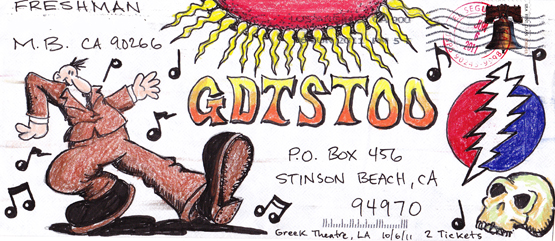 FRESHMAN
M.B. CA 90266
GDTSTOO
P.O. BOX 456
STINSON BEACH, CA
94970
Greek Theatre, LA 10/6/11 2 Tickets